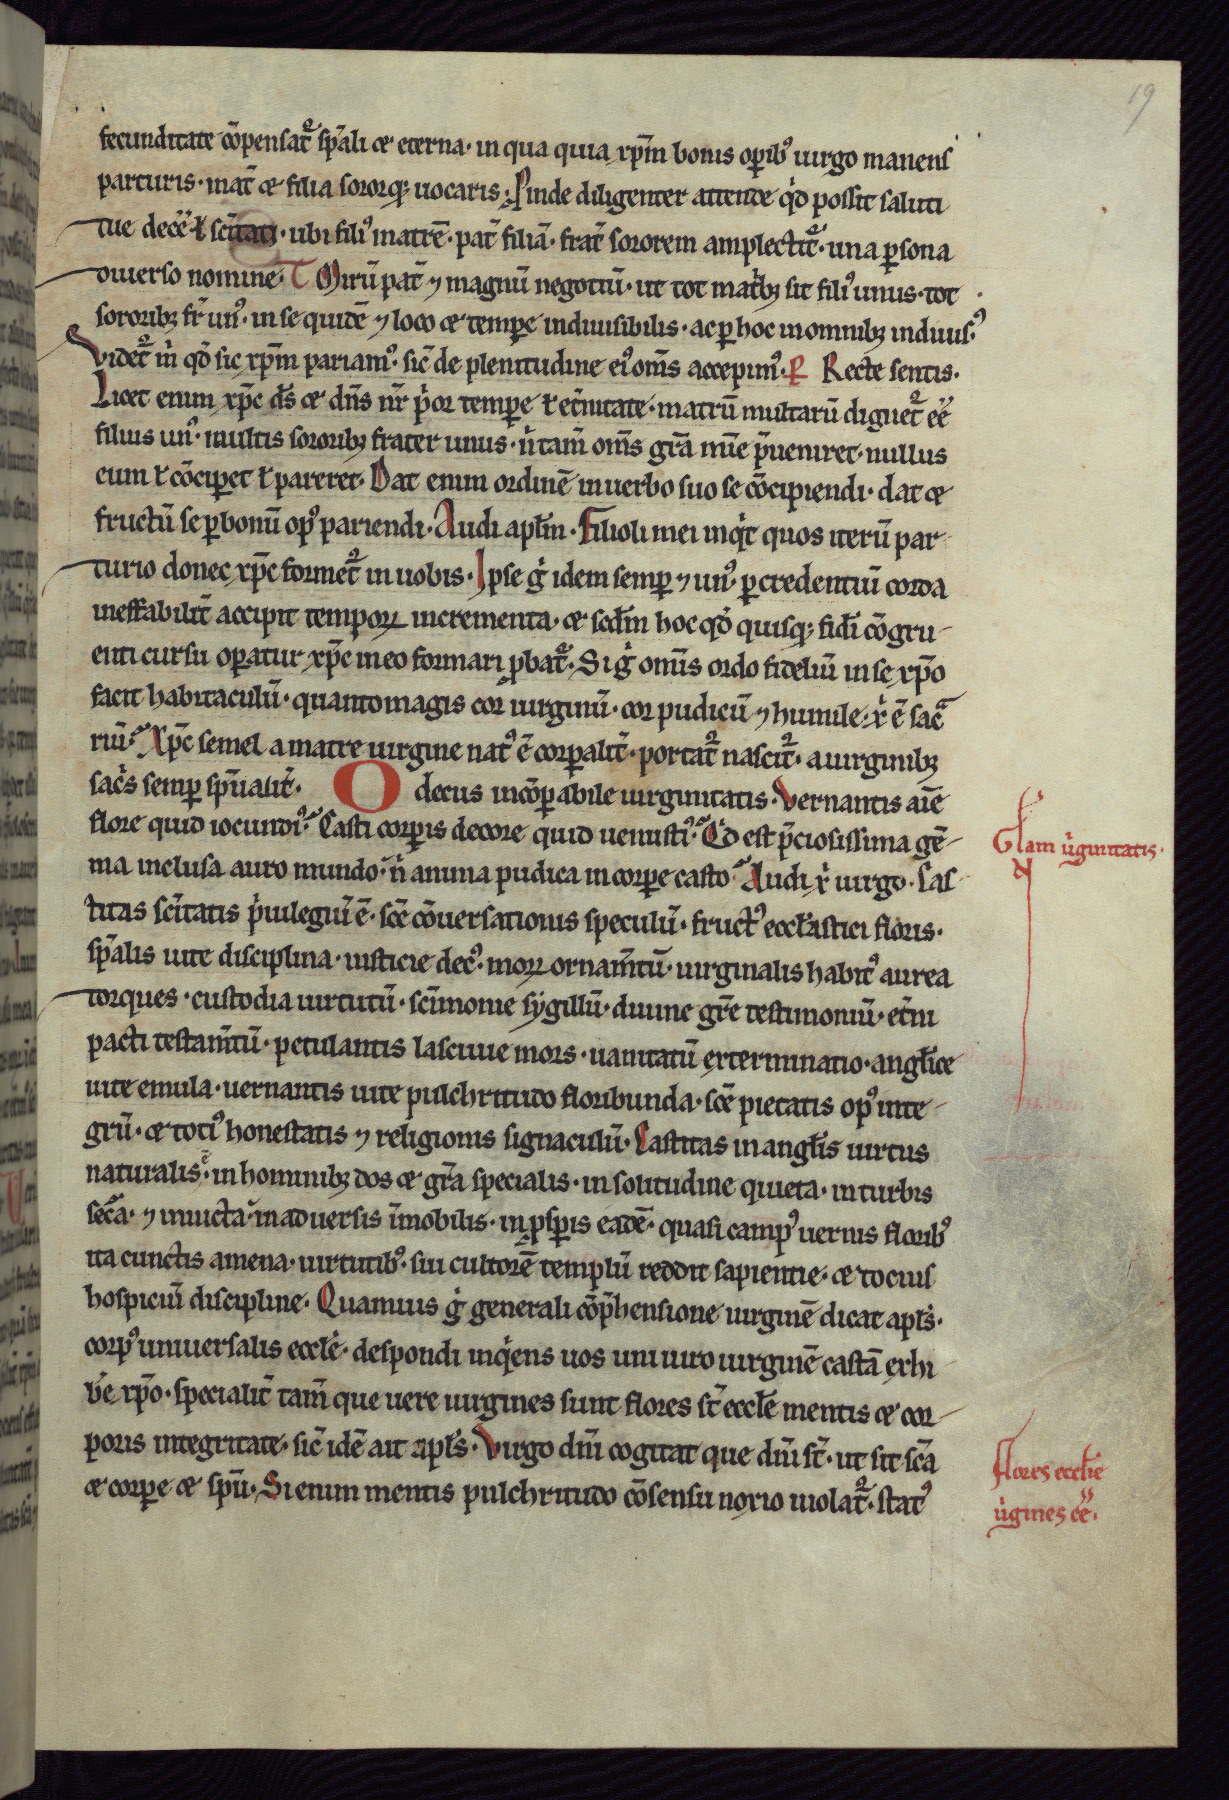 19
fecunditate cōpensat᷑ sp̄ali & eterna· in qua quia xp̄m bonis operib⁹ uirgo manens
parturis· mat̄ & filia sororq; uocaris. Proinde diligenter attende qͥd possit saluti
tue decēē ł scītati· ubi fili⁹ matrē· pat̄ filiā· frat̄ sororem amplectit᷑· una ꝑsona
diuerso nomine. T Mirū pat̄ ⁊ magnū negotiū· ut tot matͥbꝫ sit fili⁹ unus· tot
sororibꝫ fr̄ un⁹· in se quidē ⁊ loco & tempe indiuisibilis· ac ꝑ hoc in omnibꝫ indiuis⁹.
Videt᷑ m̄ qd̄ sic xp̄m pariam⁹· sic̄ de plenitudine ei⁹ om̄s accepim⁹. P Recte sentis.
Licet enim xp̄c d̄s & dn̄s nr̄ pͥor tempe ł et̄nitate· matrū multarū dignet᷑ eē
filius un⁹· multis sororibꝫ frater unus· n̄ tam̄ om̄s gr̄a nr̄e p̄ueniret· nullus
eum ł cōciꝑet ł pareret. Dat enim ordinē in uerbo suo se cōcipiendi· dat &
fructū se ꝑ bonū op⁹ pariendi. Audi apl̄m. Filioli mei inqͥt quos iterū par-
turio donec xp̄c formet᷑ in uobis. Ipse gͦ idem semꝑ ⁊ un⁹· ꝑ credentiū corda
ineffabilit̄ accipit temporꝝ incrementa· & scd̄m hoc qd̄ quisq; fidī cōgru-
enti cursu oꝑatur xp̄c in eo formari ꝓbat᷑. Si gͦ omnis ordo fideliū in se xp̄o
facit habitaculū· quanto magis cor uirginū· cor pudicū ⁊ humile xͥ ē sac̄ͣ
riū. Xp̄c semel a matre uirgine nat⁹ ē corꝑalit̄· portat᷑ nascit᷑· a uirginibꝫ
sac̄s semꝑ sp̄ualit̄. O decus incōꝑabile uirginitatis. Vernantis aīe
flore quid iocundi⁹. Casti corꝑis decore quid uenusti⁹. Qͥd est p̄ciosissima gē-
ma inclusa auro mundo· n̄ anima pudica in corꝑe casto. Audi xͥ uirgo. Cas-
titas scītatis pͥuilegiū ē· scē cōuersationis speculū· fruct⁹ eccl̄astici floris·
sp̄alis uite disciplina· iusticie dec⁹· morꝝ ornam̄tū· uirginalis habit⁹ aurea
torques· custodia uirtutū· scīmonie sygillū· diuine gr̄e testimoniū· et̄ni
pacti testam̄tū· petulantis lasciuie mors· uanitatū exterminatio· angl̄ice
uite emula· uernantis uite pulchritudo floribunda· scē pietatis op⁹ inte-
grū· & toti⁹ honestatis ⁊ religionis signaculū. Castitas in angl̄is uirtus
naturalis· in hominibꝫ dos & gr̄a specialis· in solitudine quieta· in turbis
secͣa· ⁊ inuicta· in aduersis īmobilis· in ꝓsꝑis eadē· quasi camp⁹ uernis florib⁹
ita cunctis amena· uirtutib⁹· sui cultorē templū reddit sapientie· & tocius
hospiciū discipline. Quamuis gͦ generali cōp̄hensione uirginē dicat apl̄s·
corp⁹ uniuersalis eccl̄e· despondi inqͥens uos uni uiro uirginē castā exhi-
b̄e xp̄o· specialit̄ tam̄ que uere uirgines sunt flores st̄ eccl̄e mentis & cor-
poris integritate· sic̄ idē ait apl̄s. Virgo dn̄i cogitat que dn̄i st̄· ut sit scā
& corꝑe & sp̄u. Si enim mentis pulchritudo cōsensu noxio uiolat᷑· stat⁹
Glam uͥginitatis.
Flores eccl̄ie
uͥgines eē.